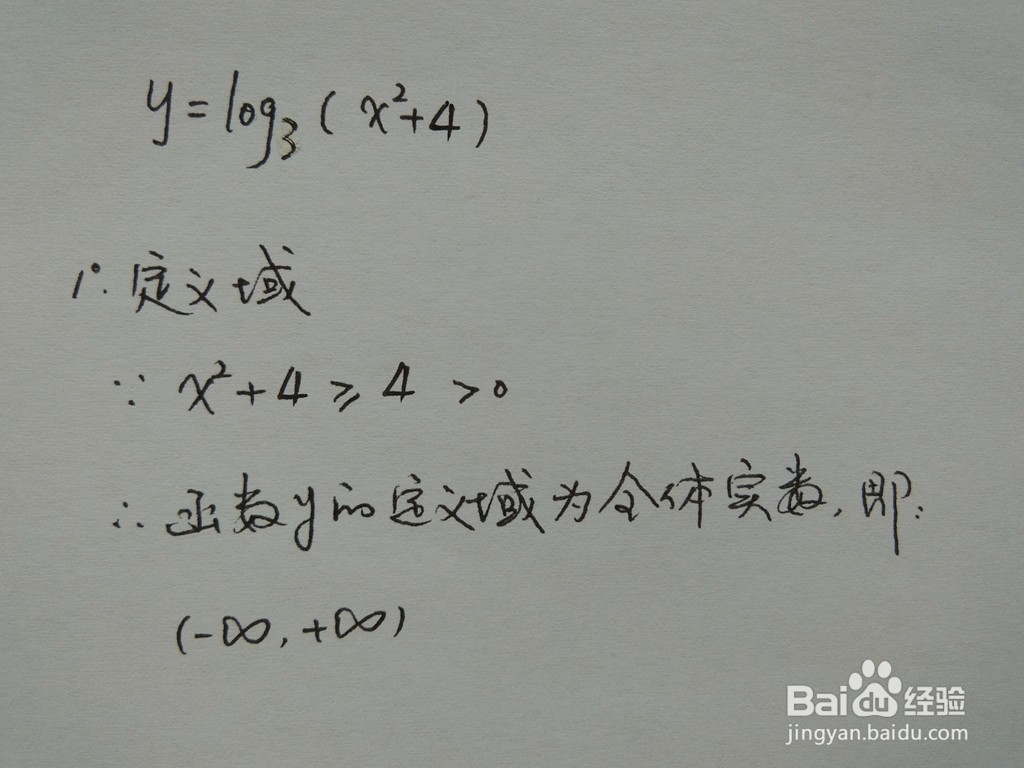 y=log₃(x²+4)
1°.定义域
∵ x²+4≥4 >0
∴ 函数y的定义域为全体实数,即:
(-∞,+∞)
Baidu经验
jingyan.baidu.com